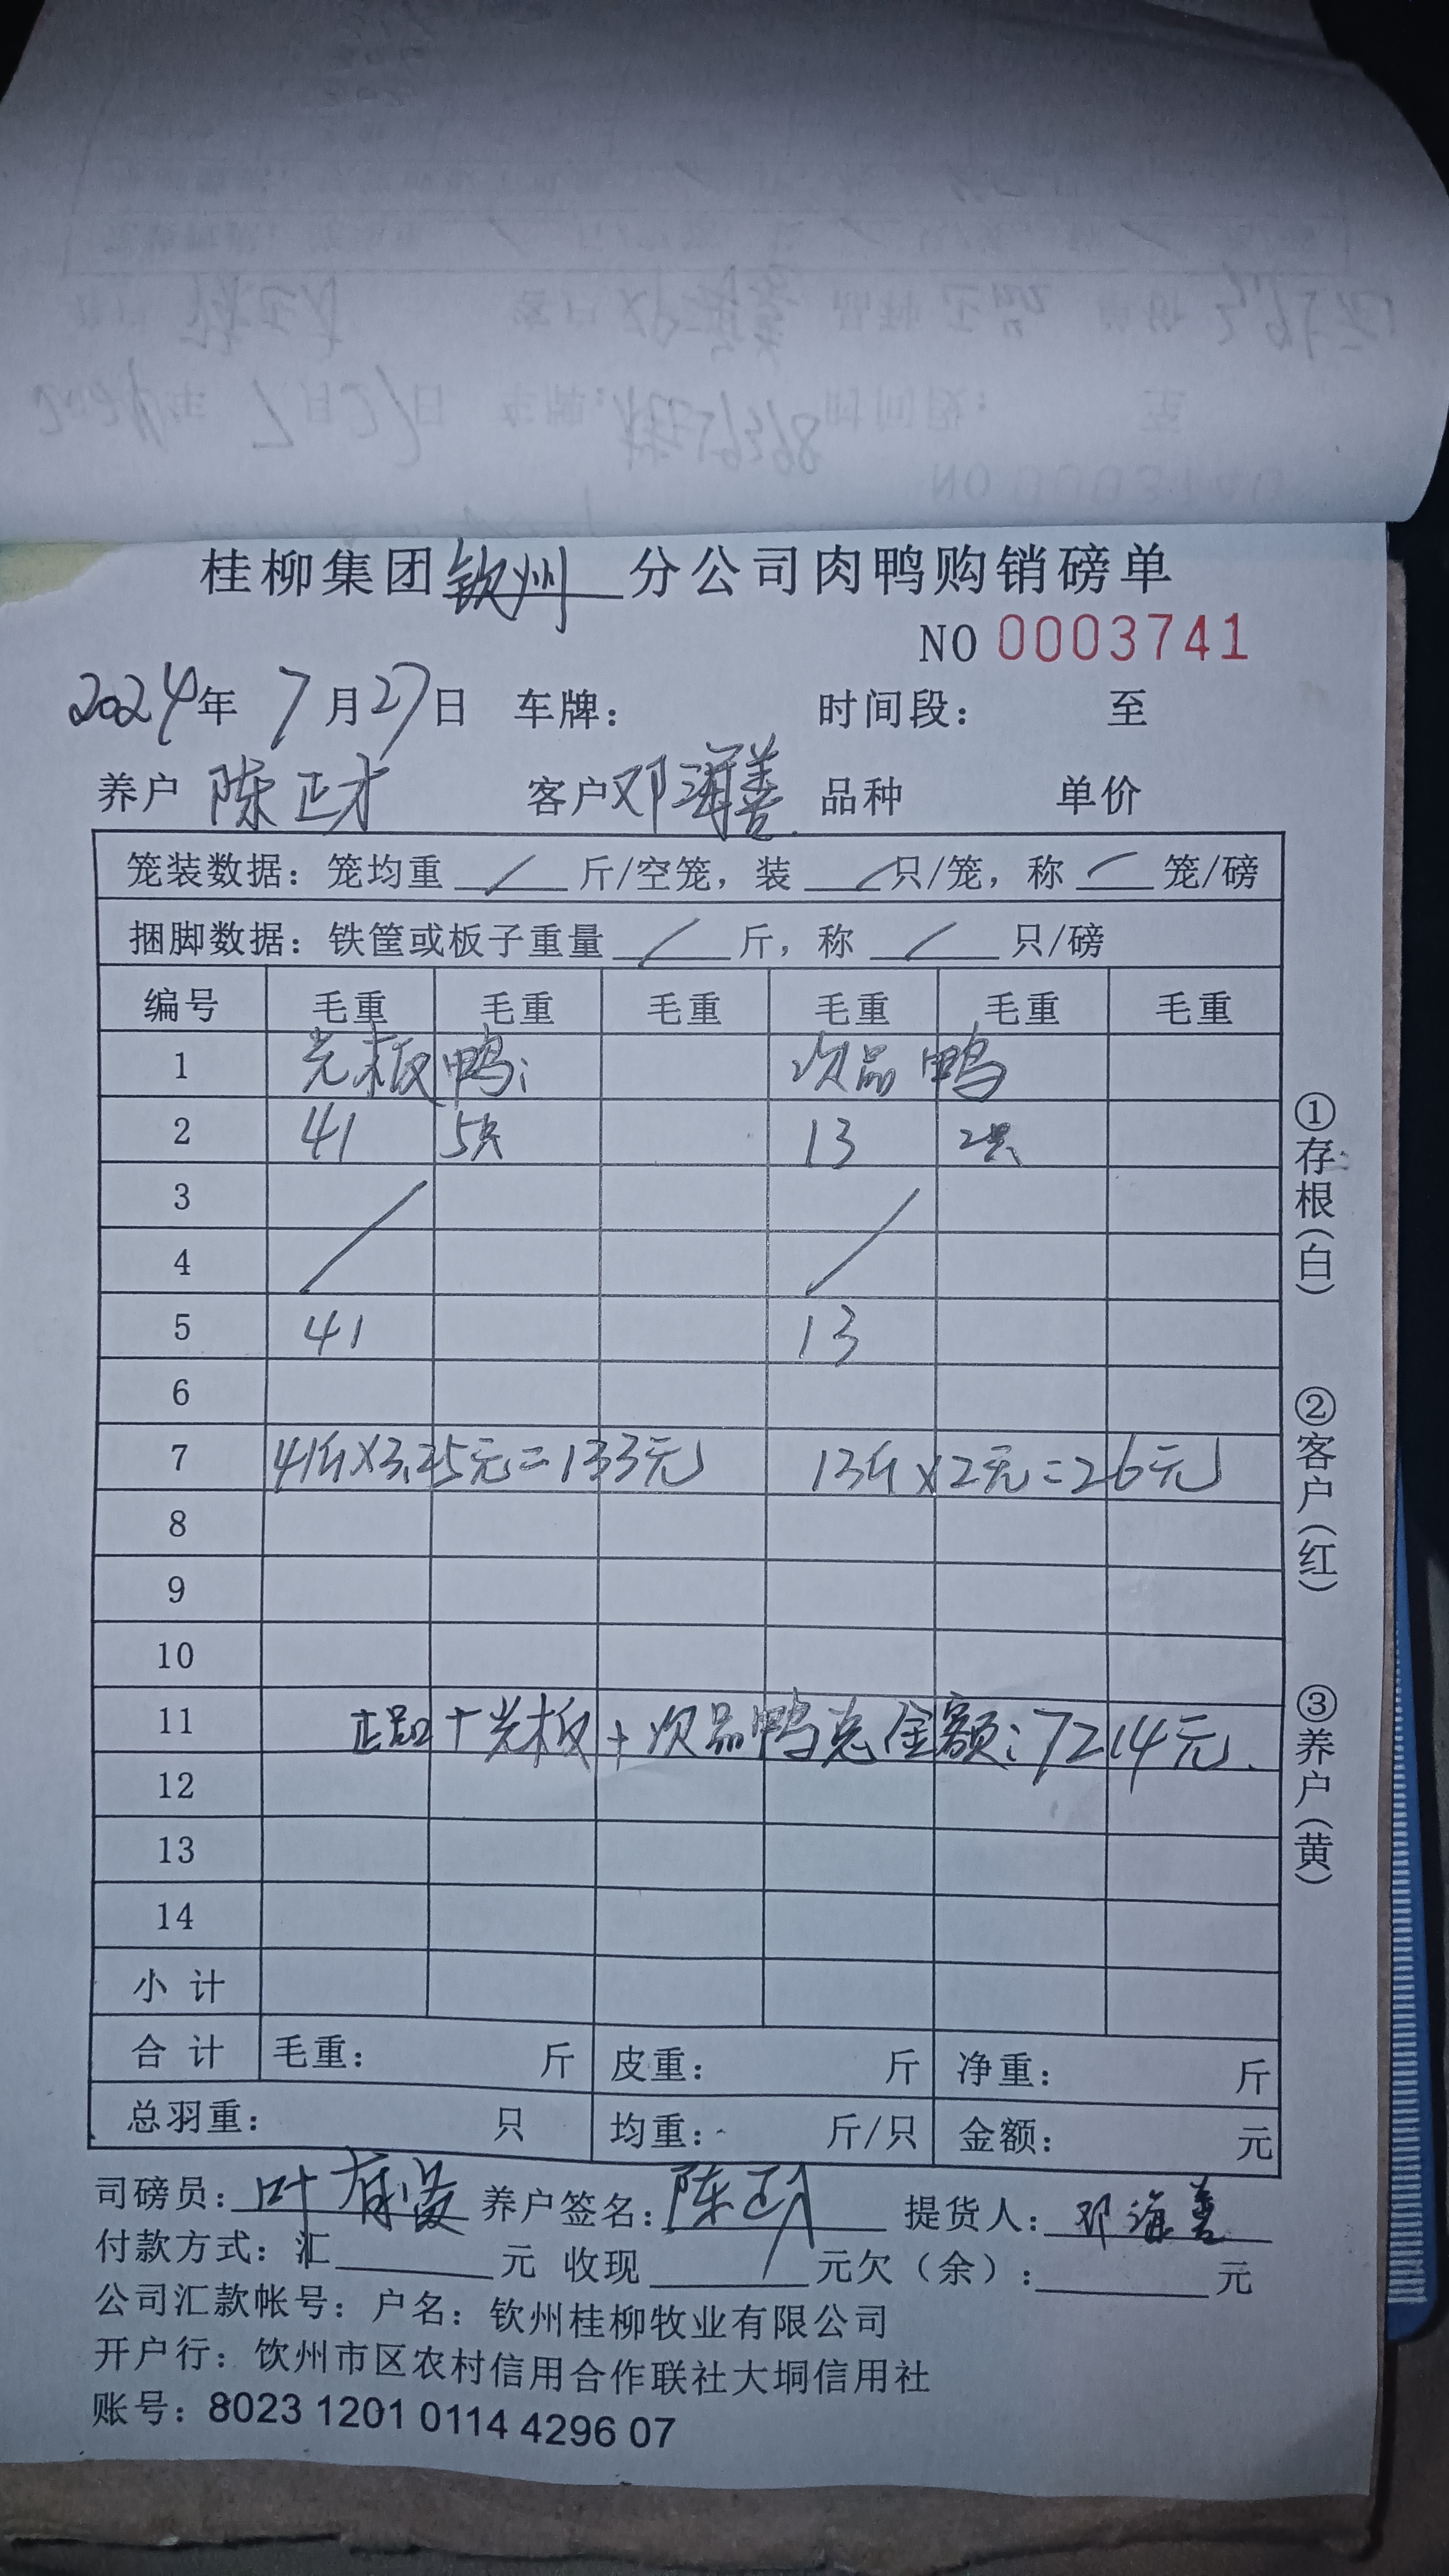 桂柳集团钦州分公司肉鸭购销磅单
NO 0003741
2024年 7月27日 车牌: 时间段: 至
养户 陈正才 客户 邓海善 品种 单价
笼装数据: 笼均重 / 斤/空笼, 装 / 只/笼, 称 / 笼/磅
捆脚数据: 铁筐或板子重量 / 斤, 称 / 只/磅
编号 毛重 毛重 毛重 毛重 毛重 毛重
1 光板鸭: 次品鸭
2 41 5只 13 2只
3
4
5 41 13
6
7 41斤×3.25元=133元 13斤×2元=26元
8
9
10
11 正品+光板+次品鸭总金额:7214元.
12
13
14
小计
合计 毛重: 斤 皮重: 斤 净重: 斤
总羽重: 只 均重: 斤/只 金额: 元
司磅员: 叶 养户签名: 陈正才 提货人: 邓海善
付款方式: 汇 元 收现 元欠(余): 元
公司汇款帐号: 户名: 钦州桂柳牧业有限公司
开户行: 钦州市区农村信用合作联社大垌信用社
账号: 8023 1201 0114 4296 07
①存根(白)
②客户(红)
③养户(黄)